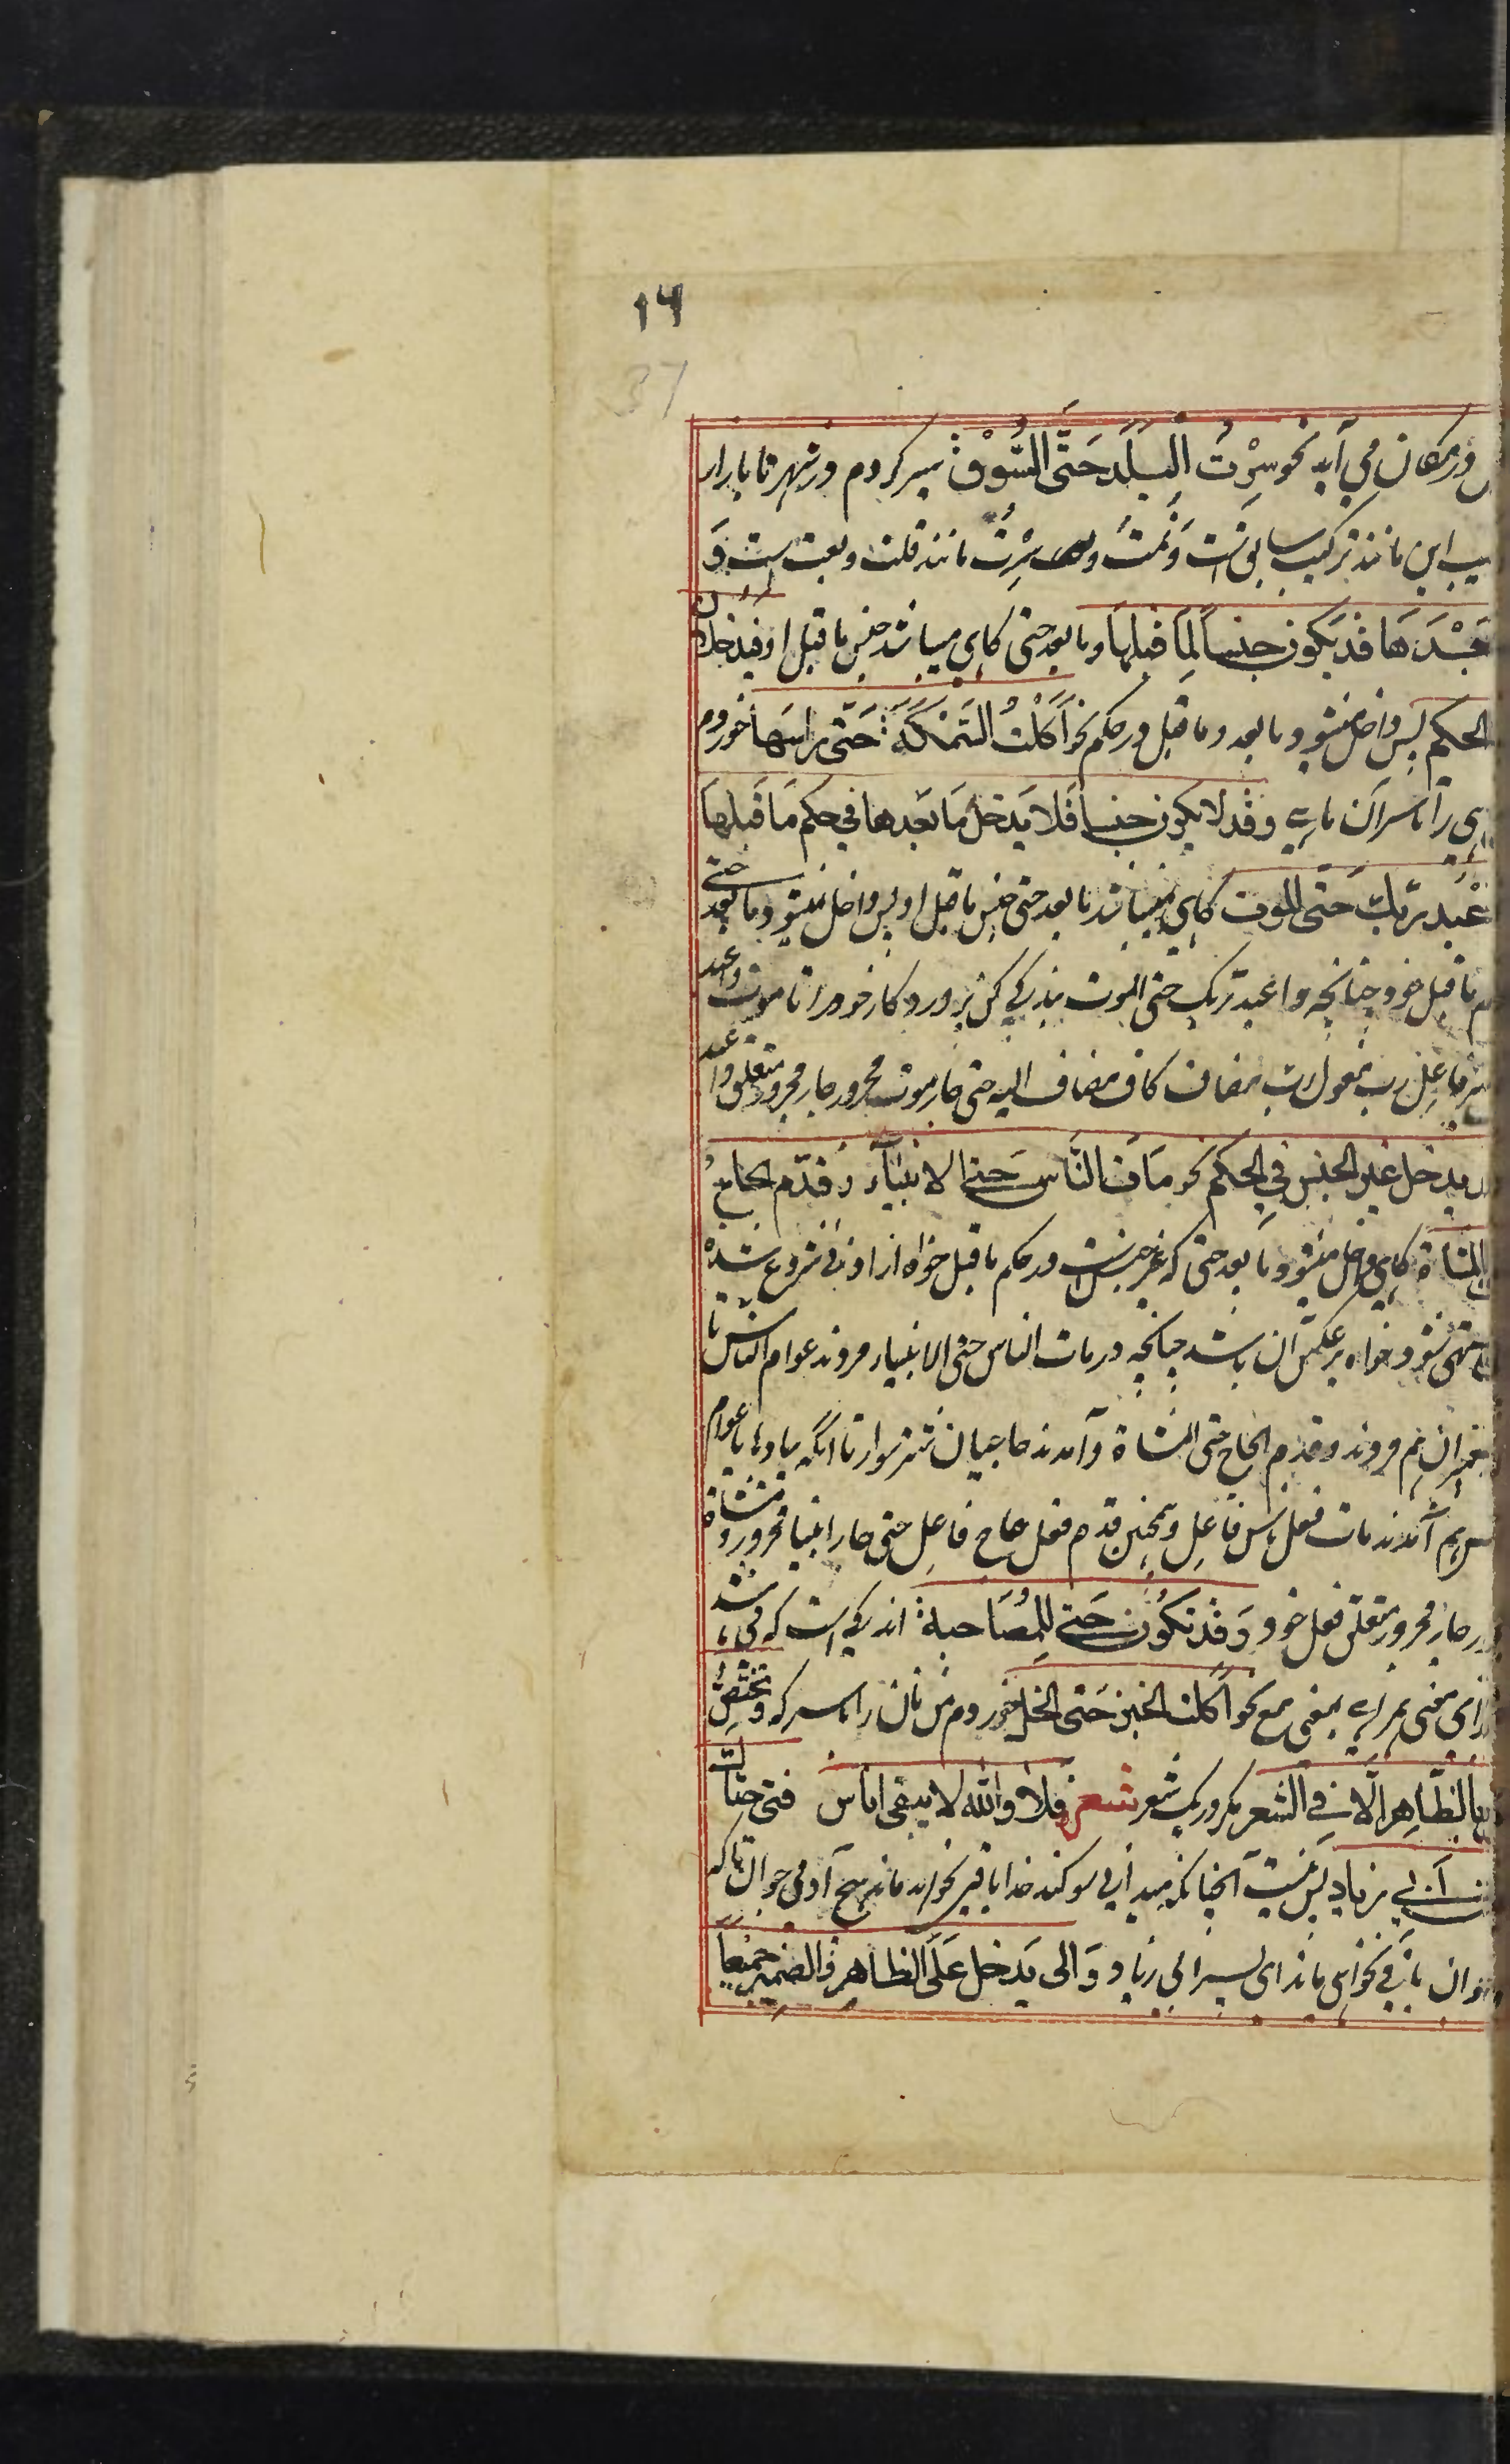 ۱۹
37
در مکان می آید نحو سِرْتُ الْبَلَدَ حَتّی السُّوْقِ سیر کردم در شهر تا بازار
این مانند ترکیب سابق است وَنِمْتُ وسِرْتُ مانند قلت وبعت است وَ
بَعْدَهَا قَدْ یَکون جنساً لِمَا قبلها وما بعد حتی کاهی میباشد جنس ما قبل او فیدخل
الحکم پس داخل میشود ما بعد وما قبل در حکم نحو اَکَلْتُ السَّمَکَةَ حَتّی رأسَها خوردم
را تا سر آن ماهی وقد لا یکون جنسا فَلا یَدخل مَا بَعدها فی حکم مَا قبلها
عْبُد ربّك حَتّی الموت کاهی نمیباشد ما بعد حتی جنس ما قبل او پس داخل نمیشود ما بعد حتی
ما قبل خود چنانچه واعبد ربک حتی الموت بندکی کن پروردکار خود را تا موت واعبد
فاعل رب مفعول رب مضاف کاف مضاف الیه حتی جار موت مجرور جار مجرور متعلق واعبد
یدخل غیر الجنس فی الحکم نحو مَات النَّاس حَتی الانبیَآء وَقدّم الحاجُ
المشاة کاهی داخل میشود ما بعد حتی که غیر جنس است در حکم ما قبل خواه از ادنی شروع شده
منتهی شود خواه بر عکس آن باشد چنانچه در مات الناس حتی الانبیاء مردند عوام الناس تا
هم مردند وقدم الحاج حتی المشاة وآمدند حاجیان شتر سوار تا آنکه پیادها عوام
هم آمدند مات فعل ناس فاعل وهمچنین قدم فعل حاج فاعل حتی جار انبیا مجرور ومشاة
جار مجرور متعلق فعل خود وَقَدْ تَکُوْن حَتی لِلْمُصَاحبة اندکی است که می باشد
ازای معنی همراهی بمعنی مع نحو اَکلت الخبز حَتی الخل خوردم من نان را با سرکه وَتختصُّ
بالظَّاهر الَّا فی الشعر مکر در یک شعر شعر فلا والله لا یبقی اناس فتی حتاك
ابی زیاد پس نیست آنچنانکه میدانی سوکند خدا باقی نخواهد ماند هیچ آدمی جوان تا که
جوان باقی نخواهی ماند ای پسر ابی زیاد وَالی یَدخل عَلَی الظاهر والضمیر جمیعاً